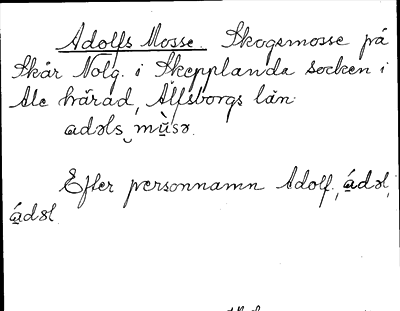 Adolfs Mosse. Skogsmosse på
Skår Nolg. i Skepplanda socken i
Ale härad, Älfsborgs län
adəls mùsə.
Efter personnamn Adolf, ádəl,
ádəl